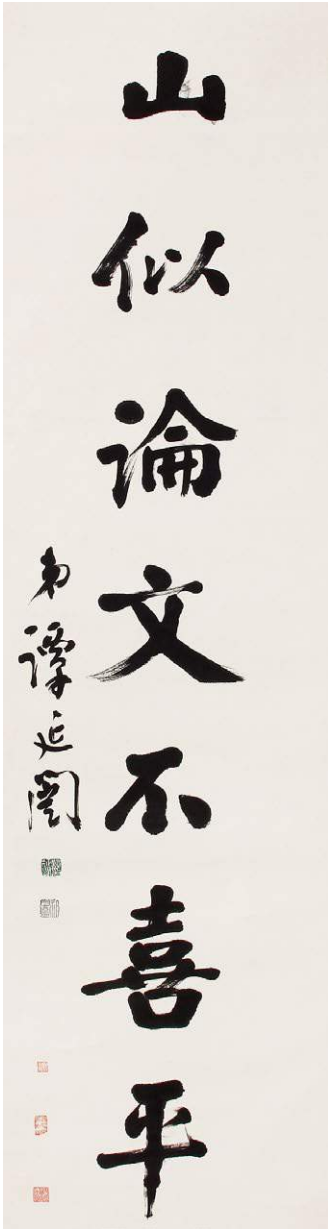 山似論文不喜平
弟譚延闓